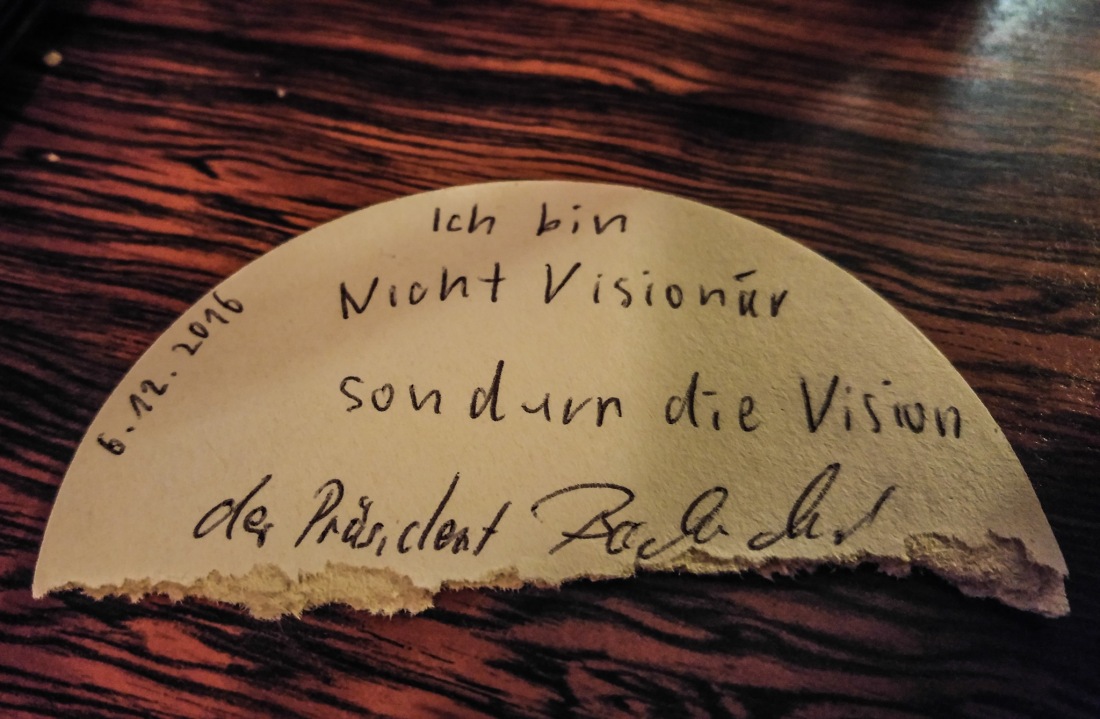 Ich bin
Nicht Visionär
sondurn die Vision
der Präsident
6.12.2016